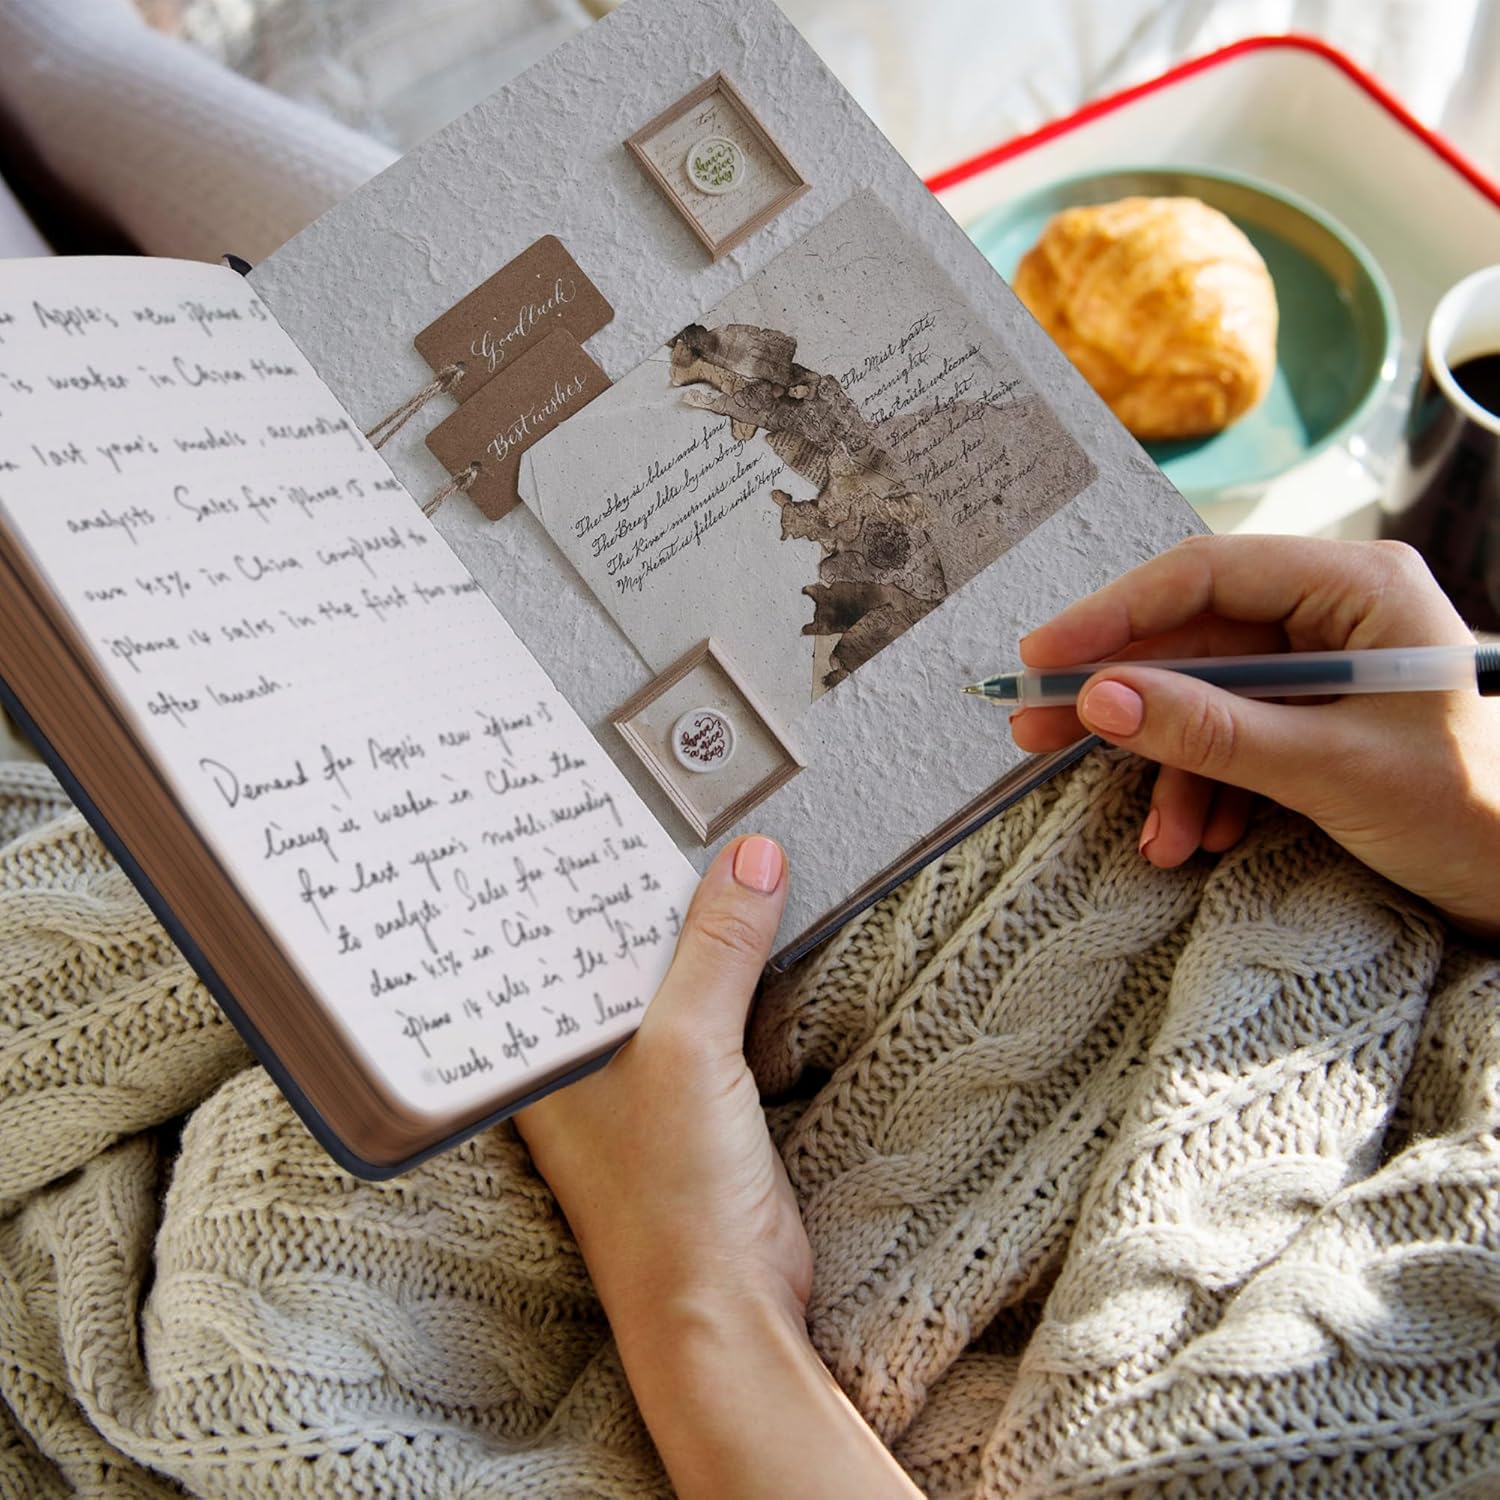 Apple's new iphone 15
is weaker in China than
last year's models, according
analysts. Sales for iphone 15 are
own 4.5% in China compared to
iphone 14 sales in the first two week
after launch.
Demand for Apple's new iphone 15
lineup is weaker in China than
for last year's models, according
to analysts. Sales for iphone 15 are
down 4.5% in China compared to
iphone 14 sales in the first
weeks after its
Good luck
Best wishes
have
a nice
day
The Sky is blue and fine
The Breeze lilts by in Song
The River murmurs clean
My Heart is filled with Hope
The Mist parts
overnight.
The Earth welcomes
Dawn's Light.
Praise be
Where free
have
a nice
day